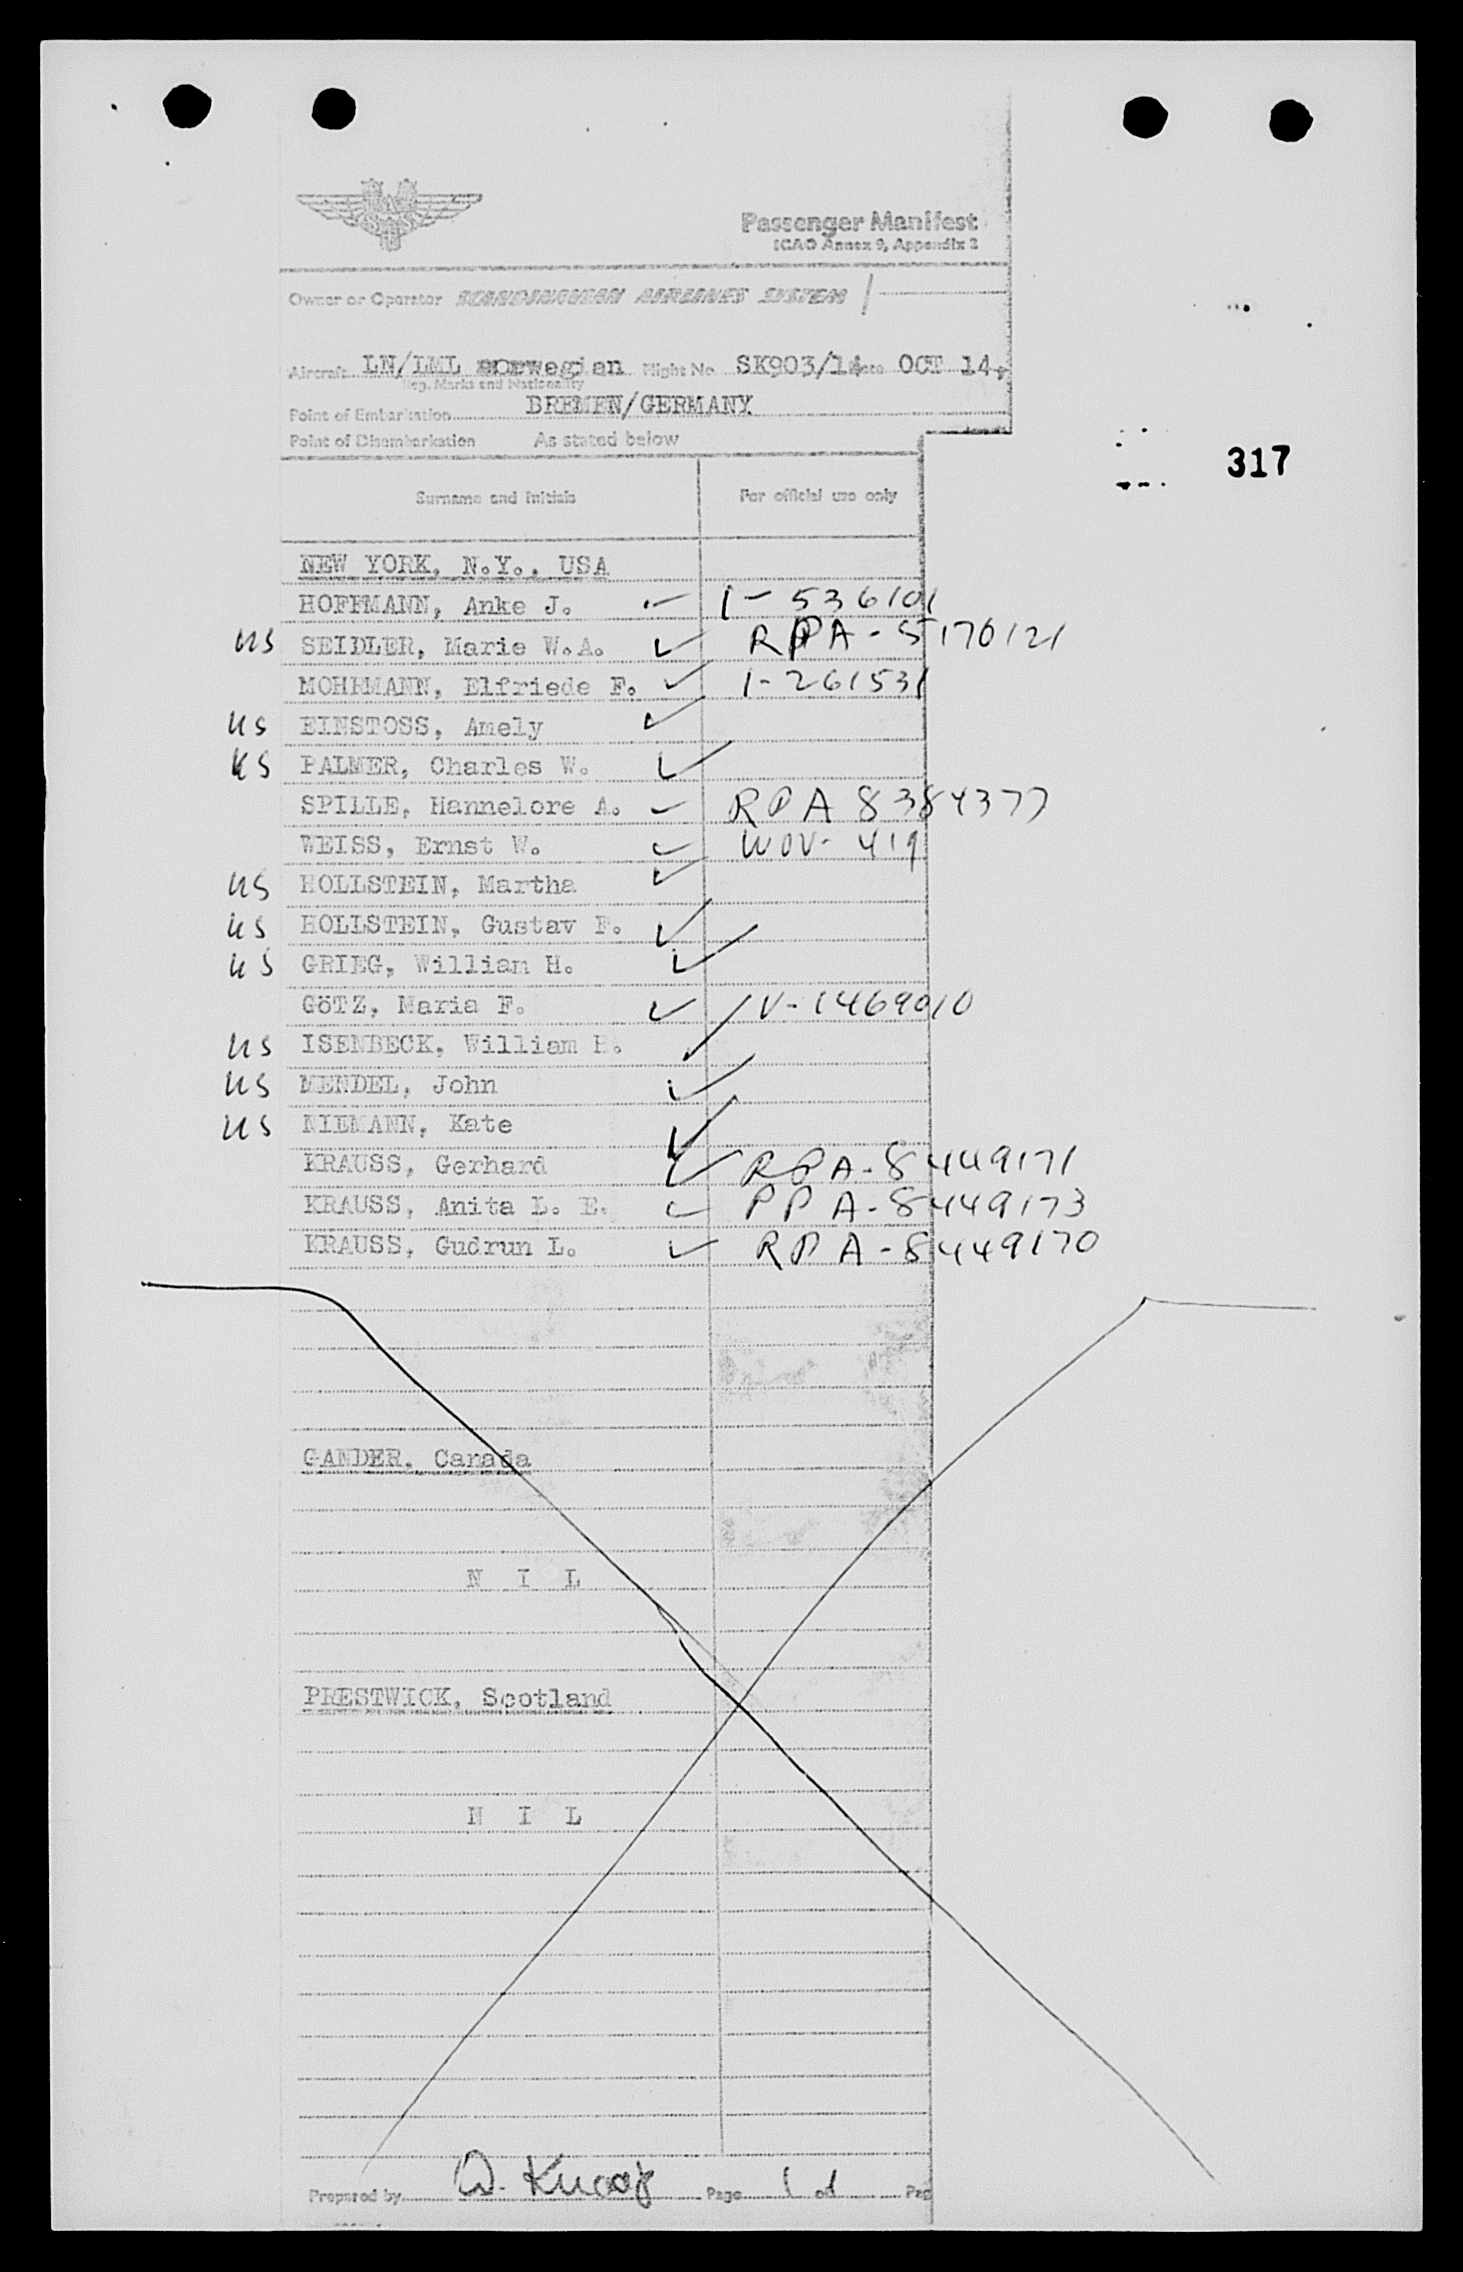 SAS
Passenger Manifest
ICAO Annex 9, Appendix 2
Owner or Operator SCANDINAVIAN AIRLINES SYSTEM
Aircraft LN/LML norwegian Flight No SK903/14 Date OCT 14,
Reg. Marks and Nationality
Point of Embarkation BREMEN/GERMANY
Point of Disembarkation As stated below
317
Surname and Initials For official use only
NEW YORK, N.Y., USA
HOFFMANN, Anke J. 1-536101
US SEIDLER, Marie W.A. RPA-5170121
MOHRMANN, Elfriede F. 1-261531
US EINSTOSS, Amely
US PALMER, Charles W.
SPILLE, Hannelore A. RPA 8384377
WEISS, Ernst W. WOV-419
US HOLLSTEIN, Martha
US HOLLSTEIN, Gustav F.
US GRIEG, William H.
GöTZ, Maria F. V-1469010
US ISENBECK, William H.
US MENDEL, John
US NIEMANN, Kate
KRAUSS, Gerhard RPA-8449171
KRAUSS, Anita L. E. PPA-8449173
KRAUSS, Gudrun L. RPA-8449170
GANDER, Canada
N I L
PRESTWICK, Scotland
N I L
Prepared by Page 1 of 1 Pag